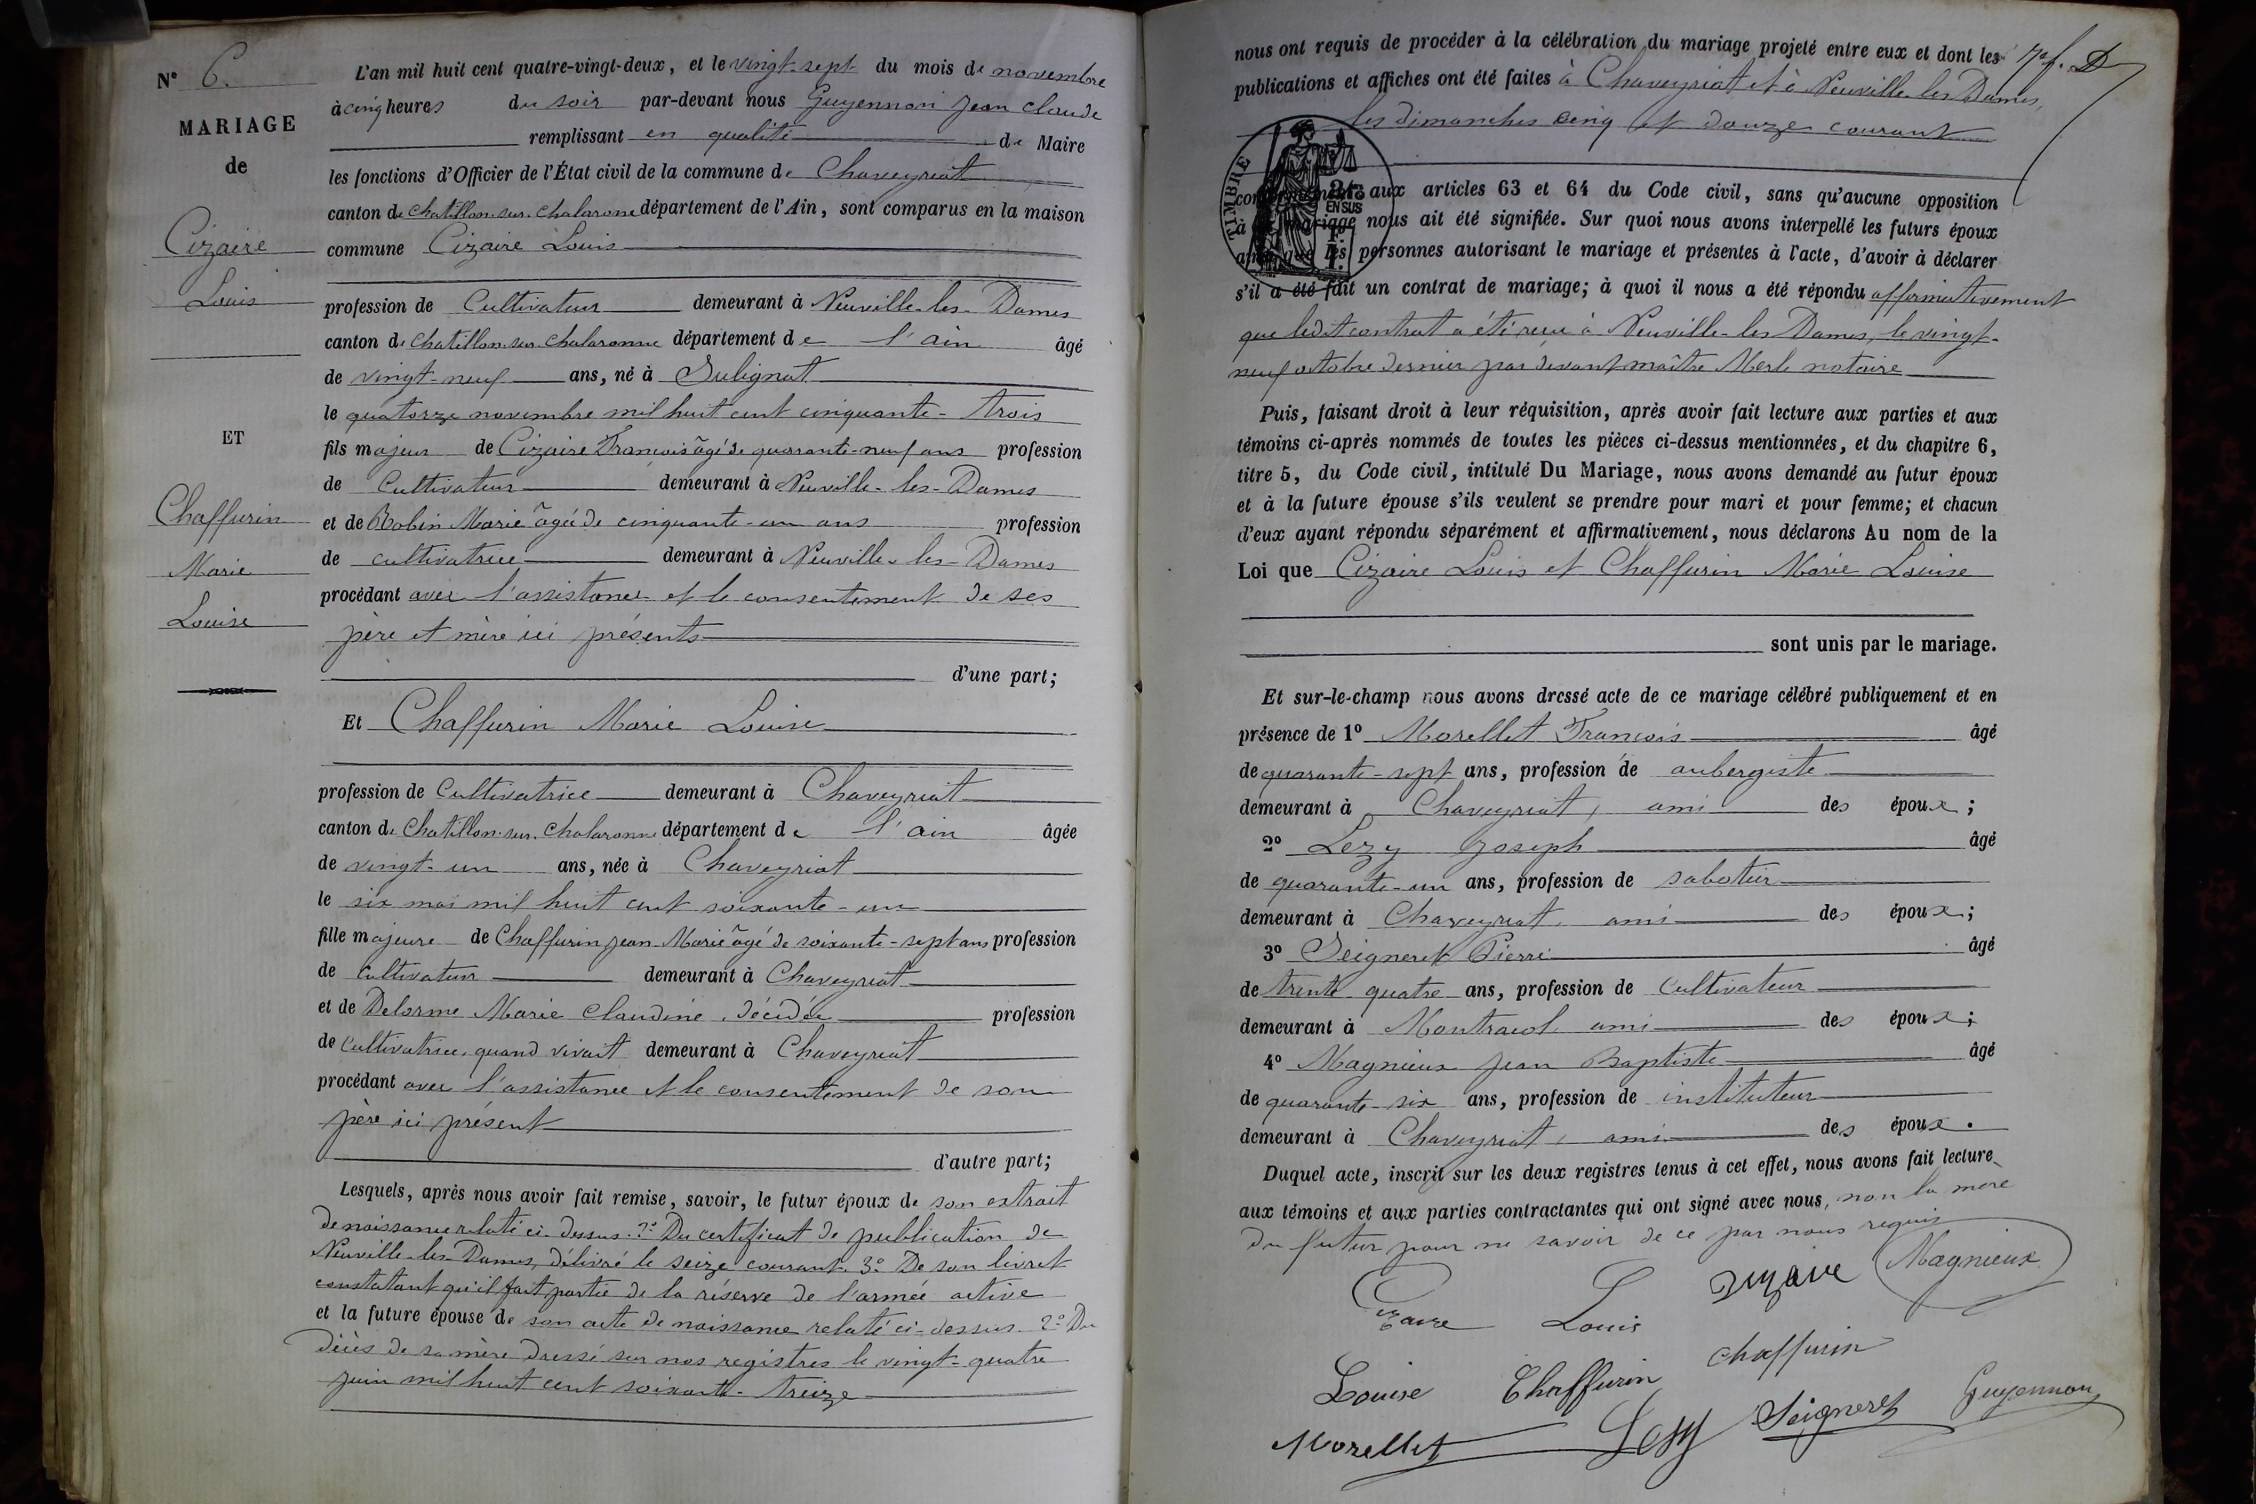 N° 6.
MARIAGE
de
Cizaire
Louis
ET
Chaffurin
Marie
Louise
L'an mil huit cent quatre-vingt-deux, et le vingt-sept du mois de novembre
à cinq heures du soir par-devant nous Guyennon Jean Claude
remplissant en qualité de Maire
les fonctions d'Officier de l'État civil de la commune de Chaveyriat
canton de Chatillon-sur-Chalaronne département de l'Ain, sont comparus en la maison
commune Cizaire Louis
profession de Cultivateur demeurant à Neuville-les-Dames
canton de Chatillon-sur-Chalaronne département de l'ain âgé
de vingt-neuf ans, né à Sulignat
le quatorze novembre mil huit cent cinquante-trois
fils majeur de Cizaire François âgé de quarante-neuf ans profession
de Cultivateur demeurant à Neuville-les-Dames
et de Robin Marie âgée de cinquante-un ans profession
de cultivatrice demeurant à Neuville-les-Dames
procédant avec l'assistance et le consentement de ses
père et mère ici présents
d'une part;
Et Chaffurin Marie Louise
profession de Cultivatrice demeurant à Chaveyriat
canton de Chatillon-sur-Chalaronne département de l'ain âgée
de vingt-un ans, née à Chaveyriat
le six mai mil huit cent soixante-un
fille majeure de Chaffurin Jean-Marie âgé de soixante-sept ans profession
de cultivateur demeurant à Chaveyriat
et de Delorme Marie Claudine, décédée profession
de cultivatrice, quand vivait demeurant à Chaveyriat
procédant avec l'assistance et le consentement de son
père ici présent
d'autre part;
Lesquels, après nous avoir fait remise, savoir, le futur époux de son extrait
de naissance relaté ci-dessus. 2° Du certificat de publication de
Neuville-les-Dames, délivré le seize courant. 3° De son livret
constatant qu'il fait partie de la réserve de l'armée active
et la future épouse de son acte de naissance relaté ci-dessus. 2° Du
décès de sa mère dressé sur nos registres le vingt-quatre
juin mil huit cent soixante-treize
nous ont requis de procéder à la célébration du mariage projeté entre eux et dont les
publications et affiches ont été faites à Chaveyriat et à Neuville-les-Dames,
les dimanches cinq et douze courant
TIMBRE
EN SUS
conformément aux articles 63 et 64 du Code civil, sans qu'aucune opposition
à ce mariage nous ait été signifiée. Sur quoi nous avons interpellé les futurs époux
ainsi que les personnes autorisant le mariage et présentes à l'acte, d'avoir à déclarer
s'il a été fait un contrat de mariage; à quoi il nous a été répondu affirmativement
que ledit contrat a été reçu à Neuville-les-Dames, le vingt-
neuf octobre dernier par devant maître Merle notaire
Puis, faisant droit à leur réquisition, après avoir fait lecture aux parties et aux
témoins ci-après nommés de toutes les pièces ci-dessus mentionnées, et du chapitre 6,
titre 5, du Code civil, intitulé Du Mariage, nous avons demandé au futur époux
et à la future épouse s'ils veulent se prendre pour mari et pour femme; et chacun
d'eux ayant répondu séparément et affirmativement, nous déclarons Au nom de la
Loi que Cizaire Louis et Chaffurin Marie Louise
sont unis par le mariage.
Et sur-le-champ nous avons dressé acte de ce mariage célébré publiquement et en
présence de 1° Morellet François âgé
de quarante-sept ans, profession de aubergiste
demeurant à Chaveyriat, ami des époux;
2° Lezy Joseph âgé
de quarante-un ans, profession de sabotier
demeurant à Chaveyriat, ami des époux;
3° Seigneret Pierre âgé
de trente-quatre ans, profession de Cultivateur
demeurant à Montracol ami des époux;
4° Magnieux Jean Baptiste âgé
de quarante-six ans, profession de instituteur
demeurant à Chaveyriat, ami des époux.
Duquel acte, inscrit sur les deux registres tenus à cet effet, nous avons fait lecture
aux témoins et aux parties contractantes qui ont signé avec nous, non la mère
du futur pour ne savoir de ce par nous requis
Magnieux
Louis
Louise Chaffurin chaffurin
Morellet Lesy Seigneret Guyennon